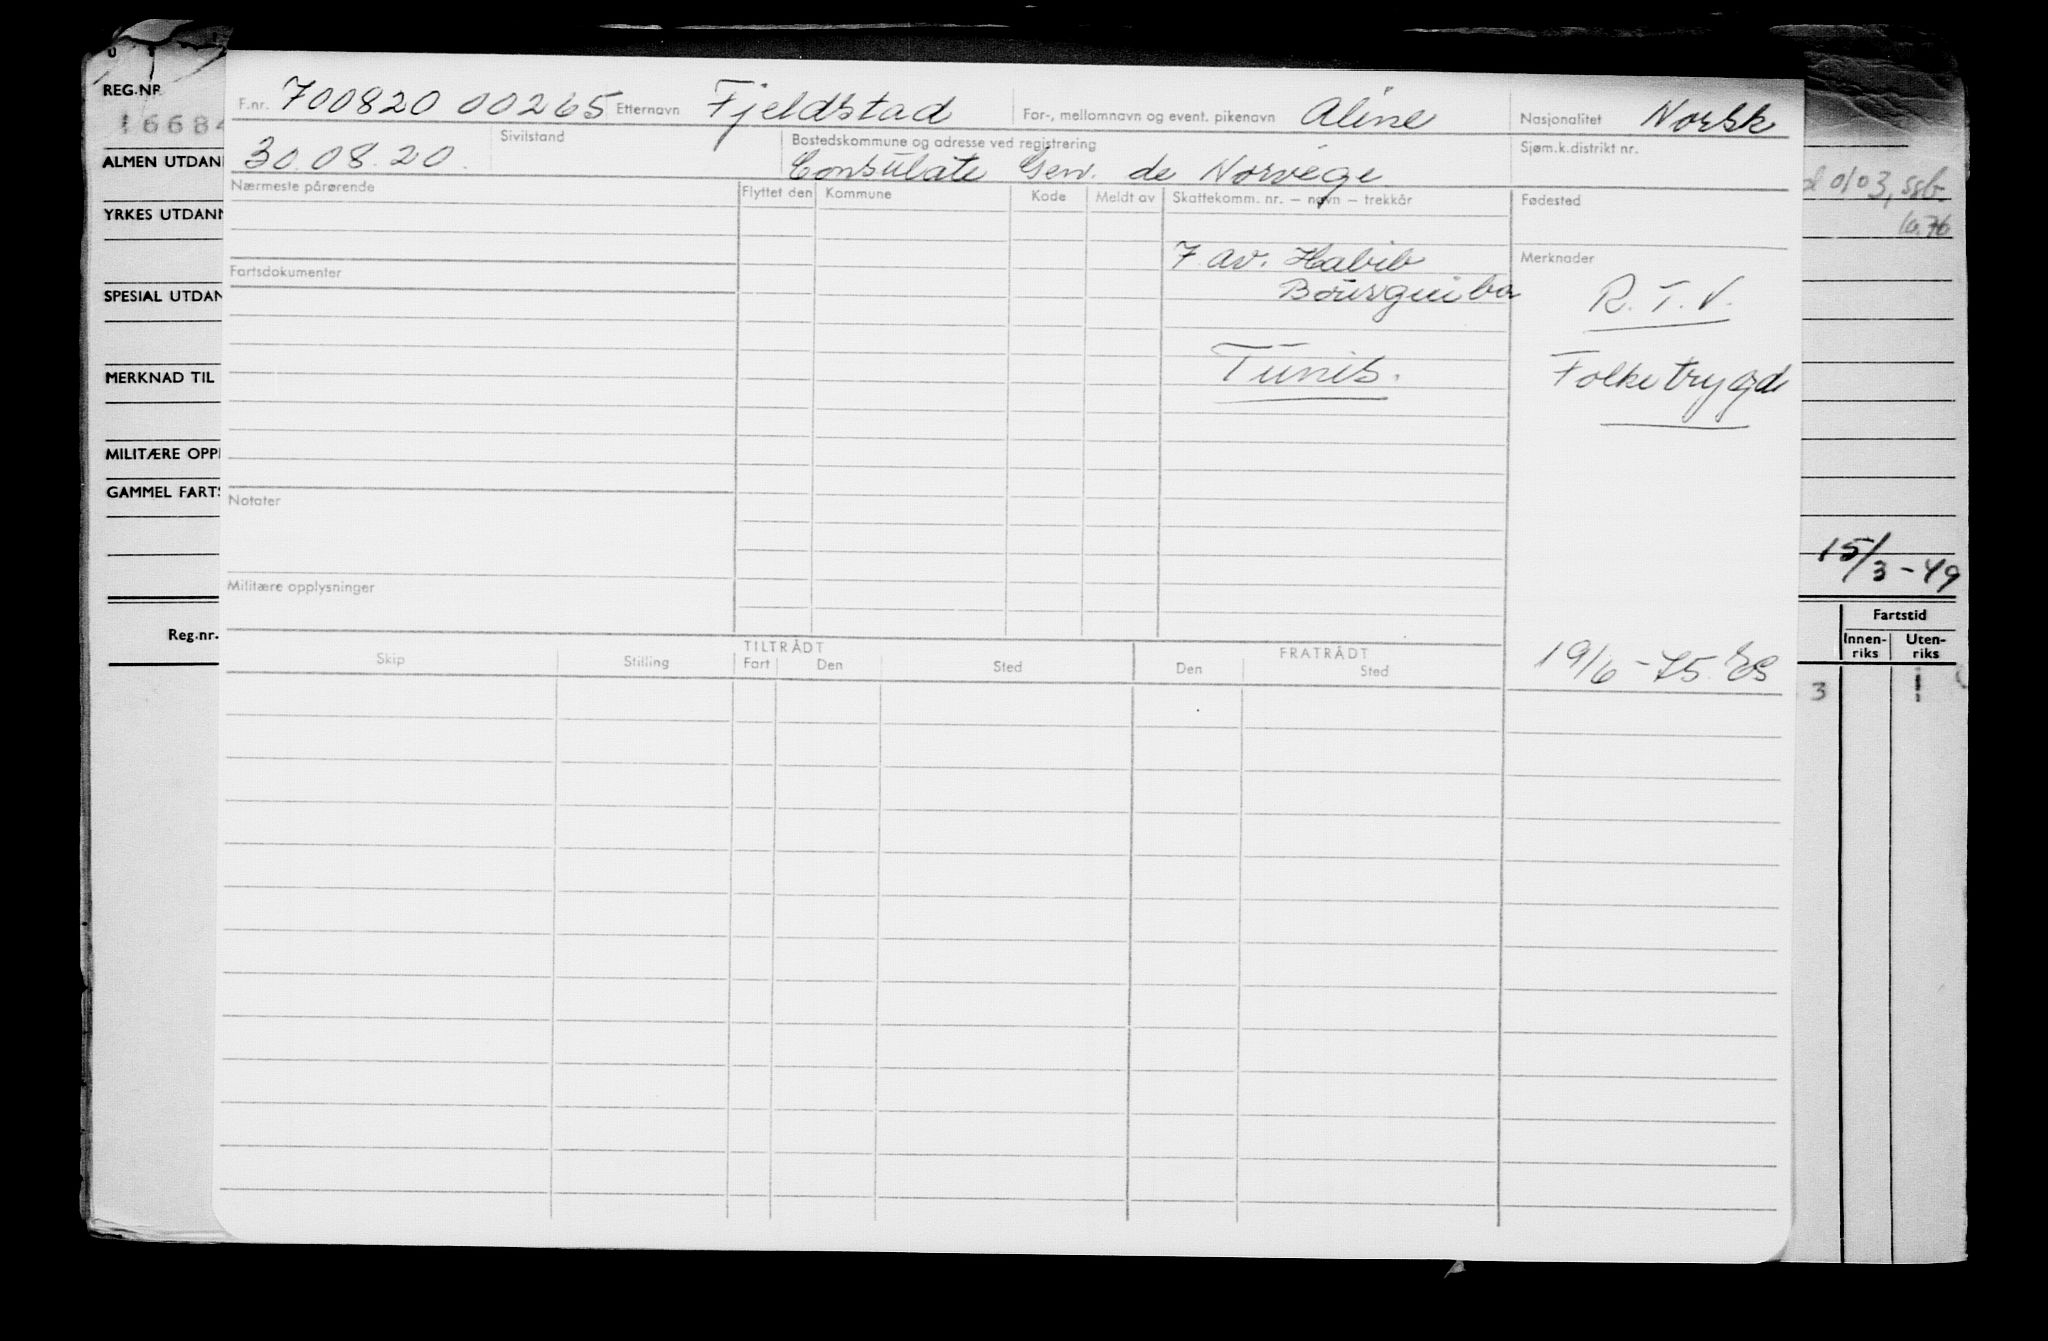 REG.NR.
16684
ALMEN UTDAN
YRKES UTDANN
SPESIAL UTDAN
MERKNAD TIL
MILITÆRE OPPL
GAMMEL FARTS
Reg.nr.
F.nr. 700820 00265 Etternavn Fjeldstad For-, mellomnavn og event. pikenavn Aline Nasjonalitet Norsk
30.08.20. Sivilstand Bostedskommune og adresse ved registrering Sjøm.k.distrikt nr.
Consulate Gen. de Norvège
Nærmeste pårørende Flyttet den Kommune Kode Meldt av Skattekomm. nr. – navn – trekkår Fødested
7 av. Habib
Bourguiba
Tunis.
Merknader
R.T.V.
Folketrygd
Fartsdokumenter
Notater
Militære opplysninger
TILTRÅDT FRATRÅDT
Skip Stilling Fart Den Sted Den Sted
19/6-75. ES
0103, ssb.
15/3-49
Fartstid
Innen-riks Uten-riks
3 1